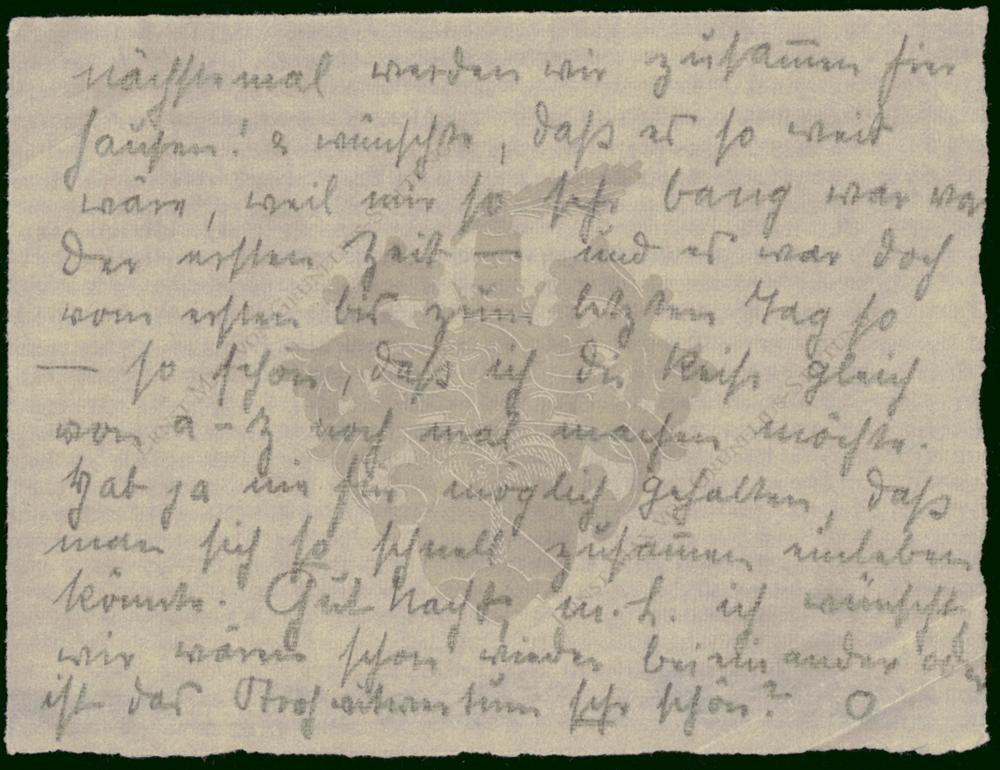 Nächstemal werden wir zusammen hier
hausen! & wünschte, daß es so weit
wäre, weil mir so sehr bang war vor
der ersten Zeit — und es war doch
vom ersten bis zum letzten Tag so
— so schön, daß ich die Reise gleich
von a-z noch mal machen möchte.
Hab ja nie für möglich gehalten, daß
man sich so schnell zusammen einleben
könnte. Gut Nacht, m. L. ich wünscht,
wir wären schon wieder beieinander oder
ist das Strohwitwertum sehr schön? O